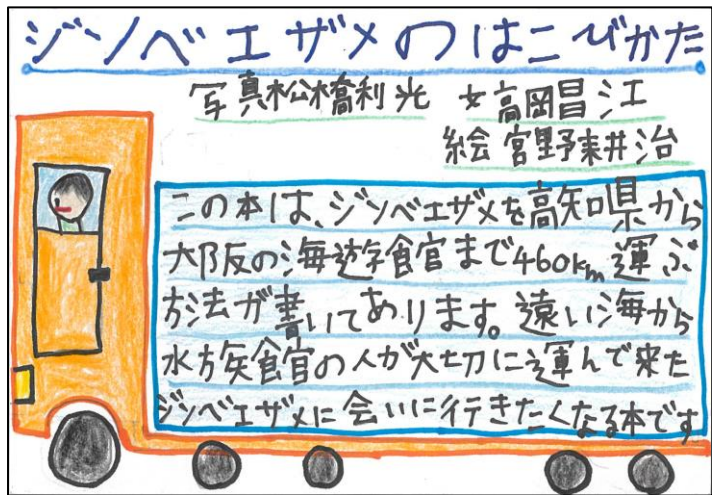 ジンベエザメのはこびかた
写真松橋利光 文高岡昌江
絵 宮野耕治
この本は、ジンベエザメを高知県から
大阪の海遊館まで460km運ぶ
方法が書いてあります。遠い海から
水族館の人が大切に運んで来た
ジンベエザメに会いに行きたくなる本です